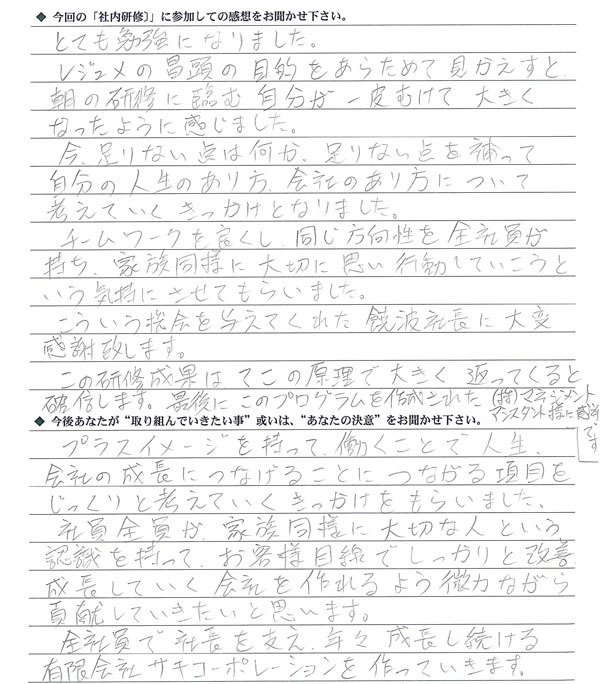 ◆ 今回の「社内研修」に参加しての感想をお聞かせ下さい。
とても勉強になりました。
レジュメの冒頭の目的をあらためて見かえすと
朝の研修に臨む自分が一皮むけて大きく
なったように感じました。
今、足りない点は何か、足りない点を補って
自分の人生のあり方、会社のあり方について
考えていくきっかけとなりました。
チームワークを良くし、同じ方向性を全社員が
持ち、家族同様に大切に思い行動していこうと
いう気持にさせてもらいました。
こういう機会を与えてくれた饒波社長に大変
感謝致します。
この研修成果は、てこの原理で大きく返ってくると
確信します。最後にこのプログラムを作成された(株)マネジメント
アシスタント様に感謝です
◆ 今後あなたが“取り組んでいきたい事”或いは、“あなたの決意”をお聞かせ下さい。
プラスイメージを持って、働くことで人生、
会社の成長につなげることにつながる項目を
じっくりと考えていくきっかけをもらいました。
社員全員が、家族同様に大切な人という
認識を持って、お客様目線でしっかりと改善
成長していく会社を作れるよう微力ながら
貢献していきたいと思います。
全社員で社長を支え、年々成長し続ける
有限会社サキコーポレーションを作っていきます。